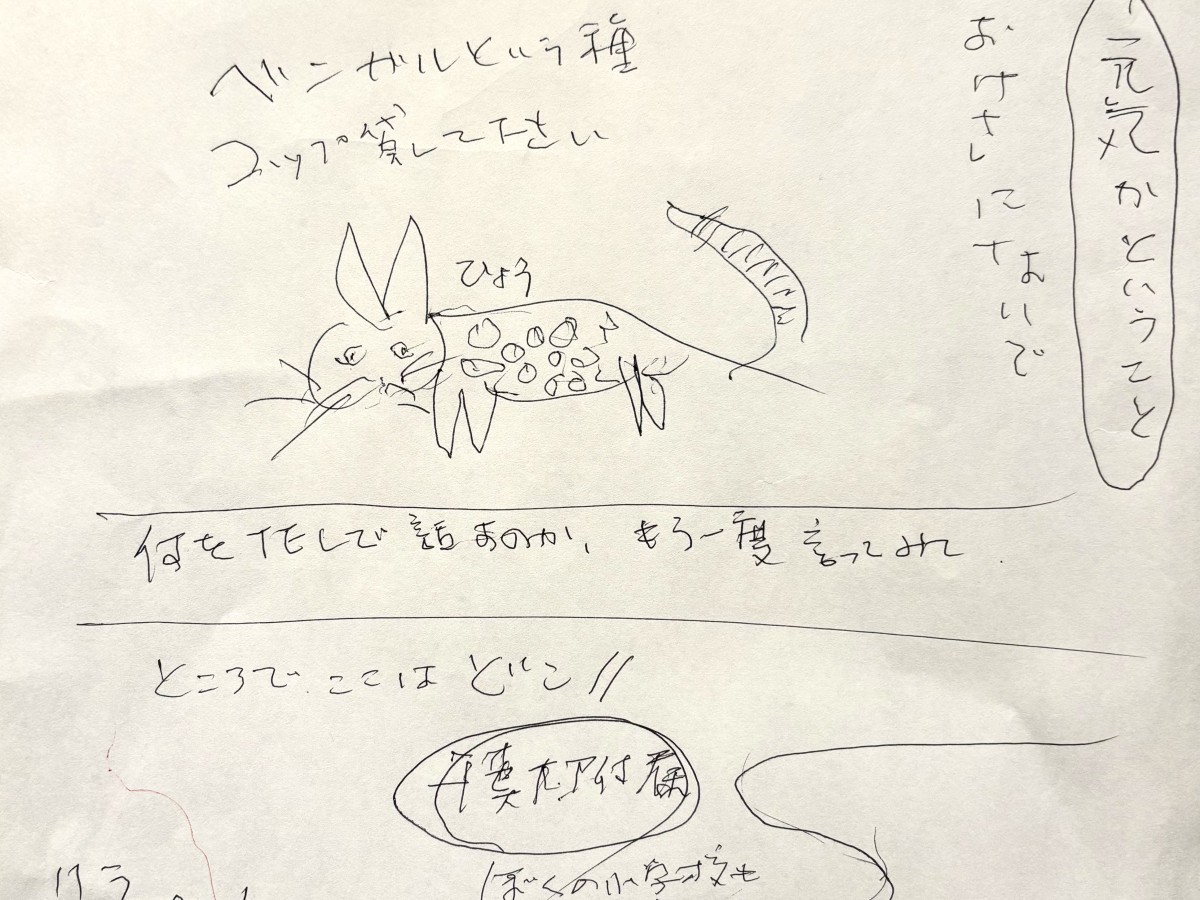 元気かということ
おけさしにナないで
ベンガルという種
コップ貸して下さい
ひょう
何を
もう一度言ってみて
ところで、ここはどこ//
付属
ぼくの小学校も